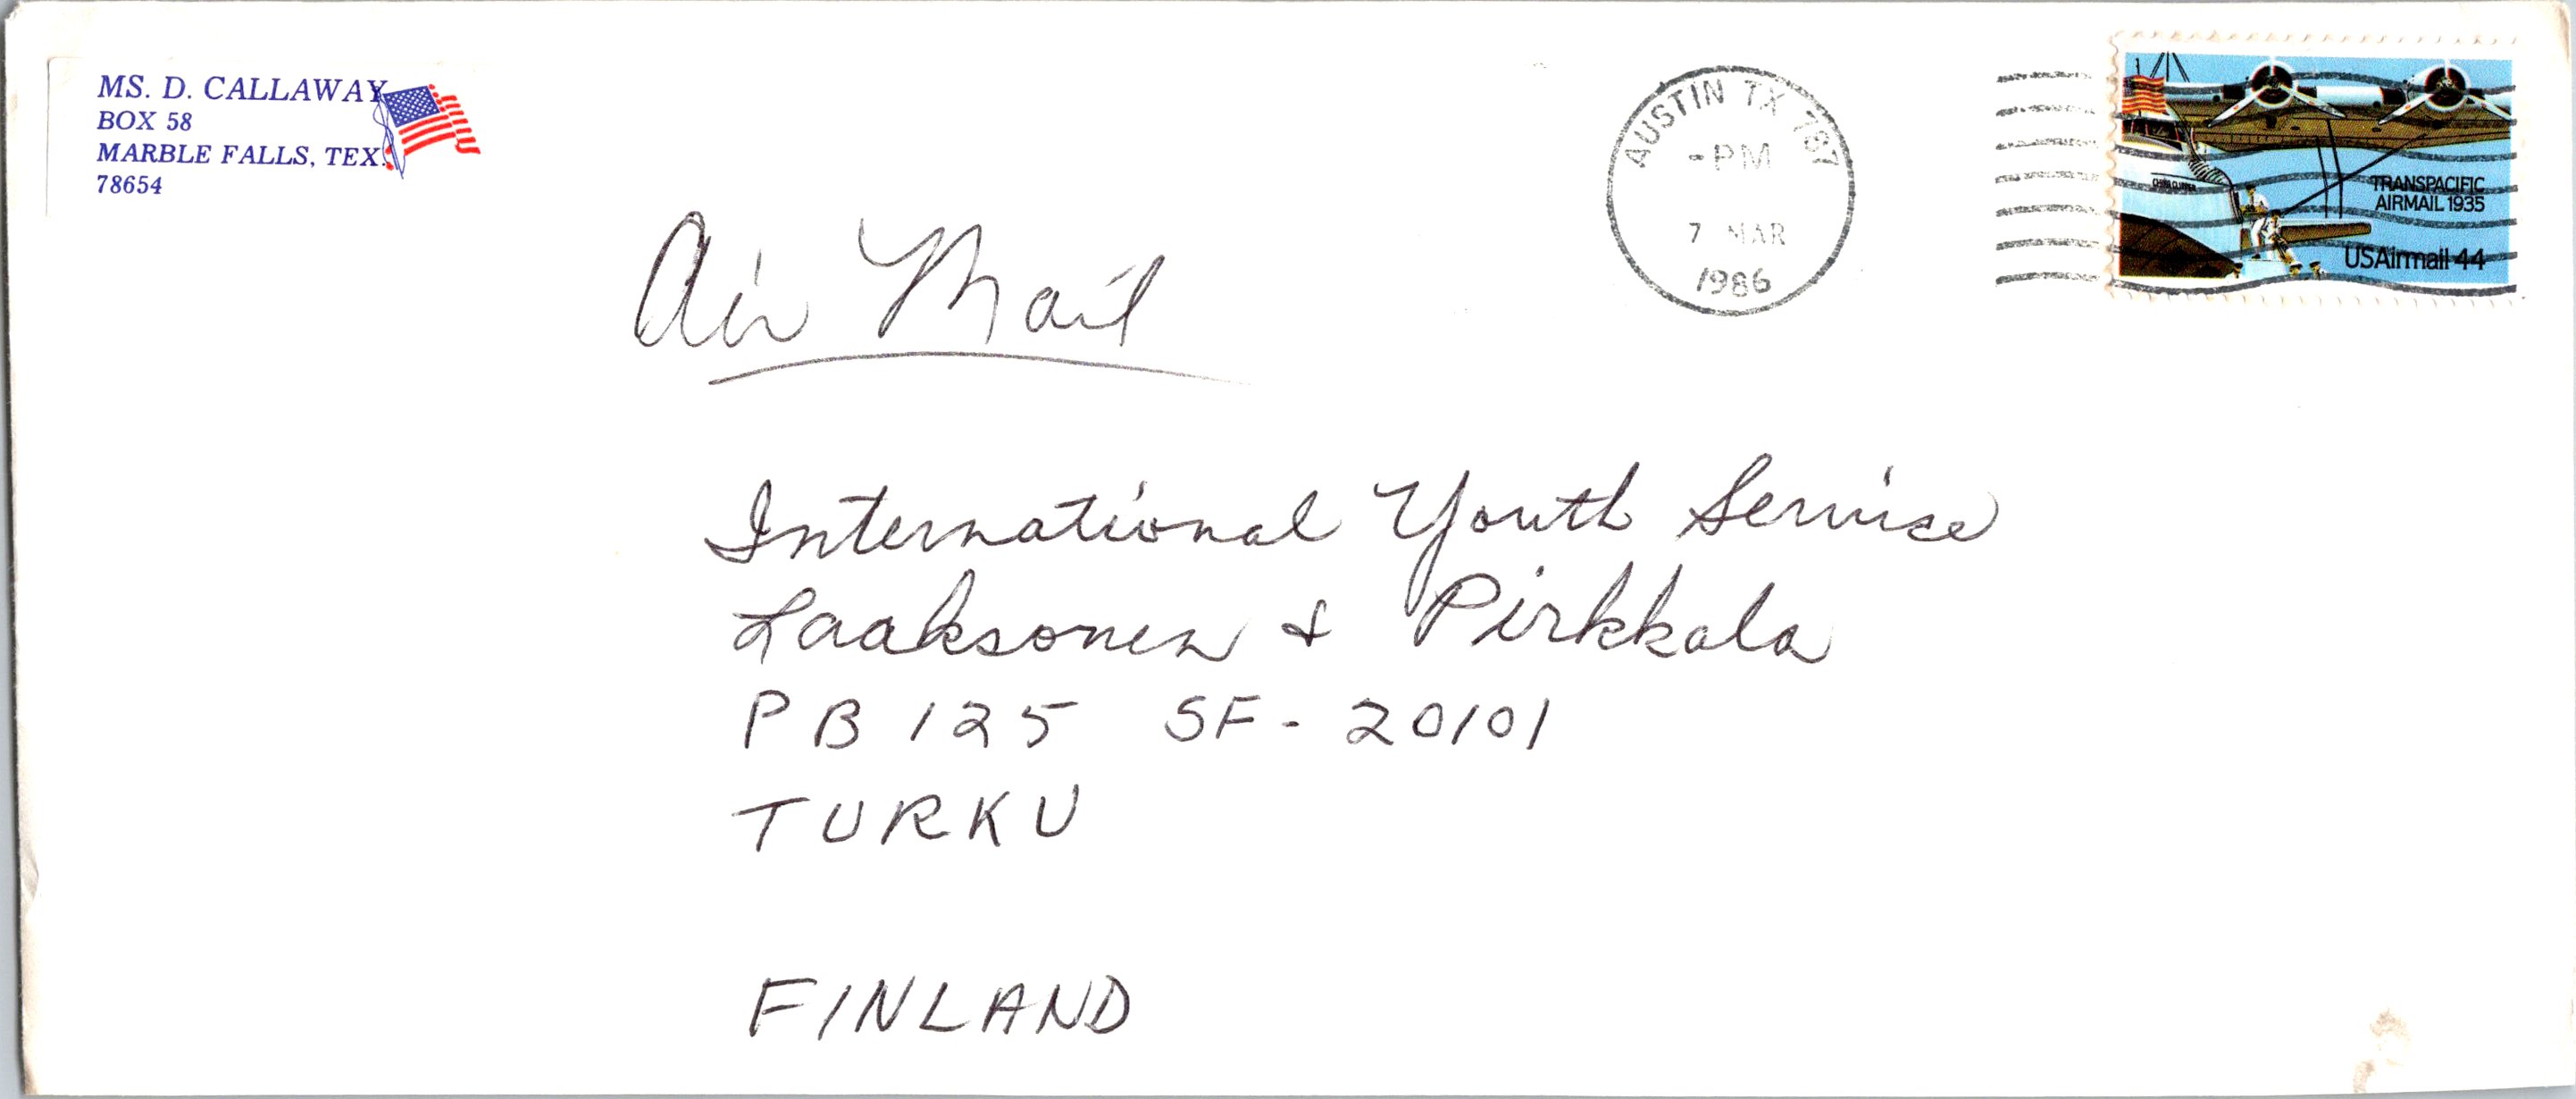 MS. D. CALLAWAY
BOX 58
MARBLE FALLS, TEX.
78654
AUSTIN TX 787
-PM
7 MAR
1986
CHINA CLIPPER
TRANSPACIFIC
AIRMAIL 1935
USAirmail 44
Air Mail
International Youth Service
Laaksonen & Pirkkala
PB 125 SF-20101
TURKU
FINLAND